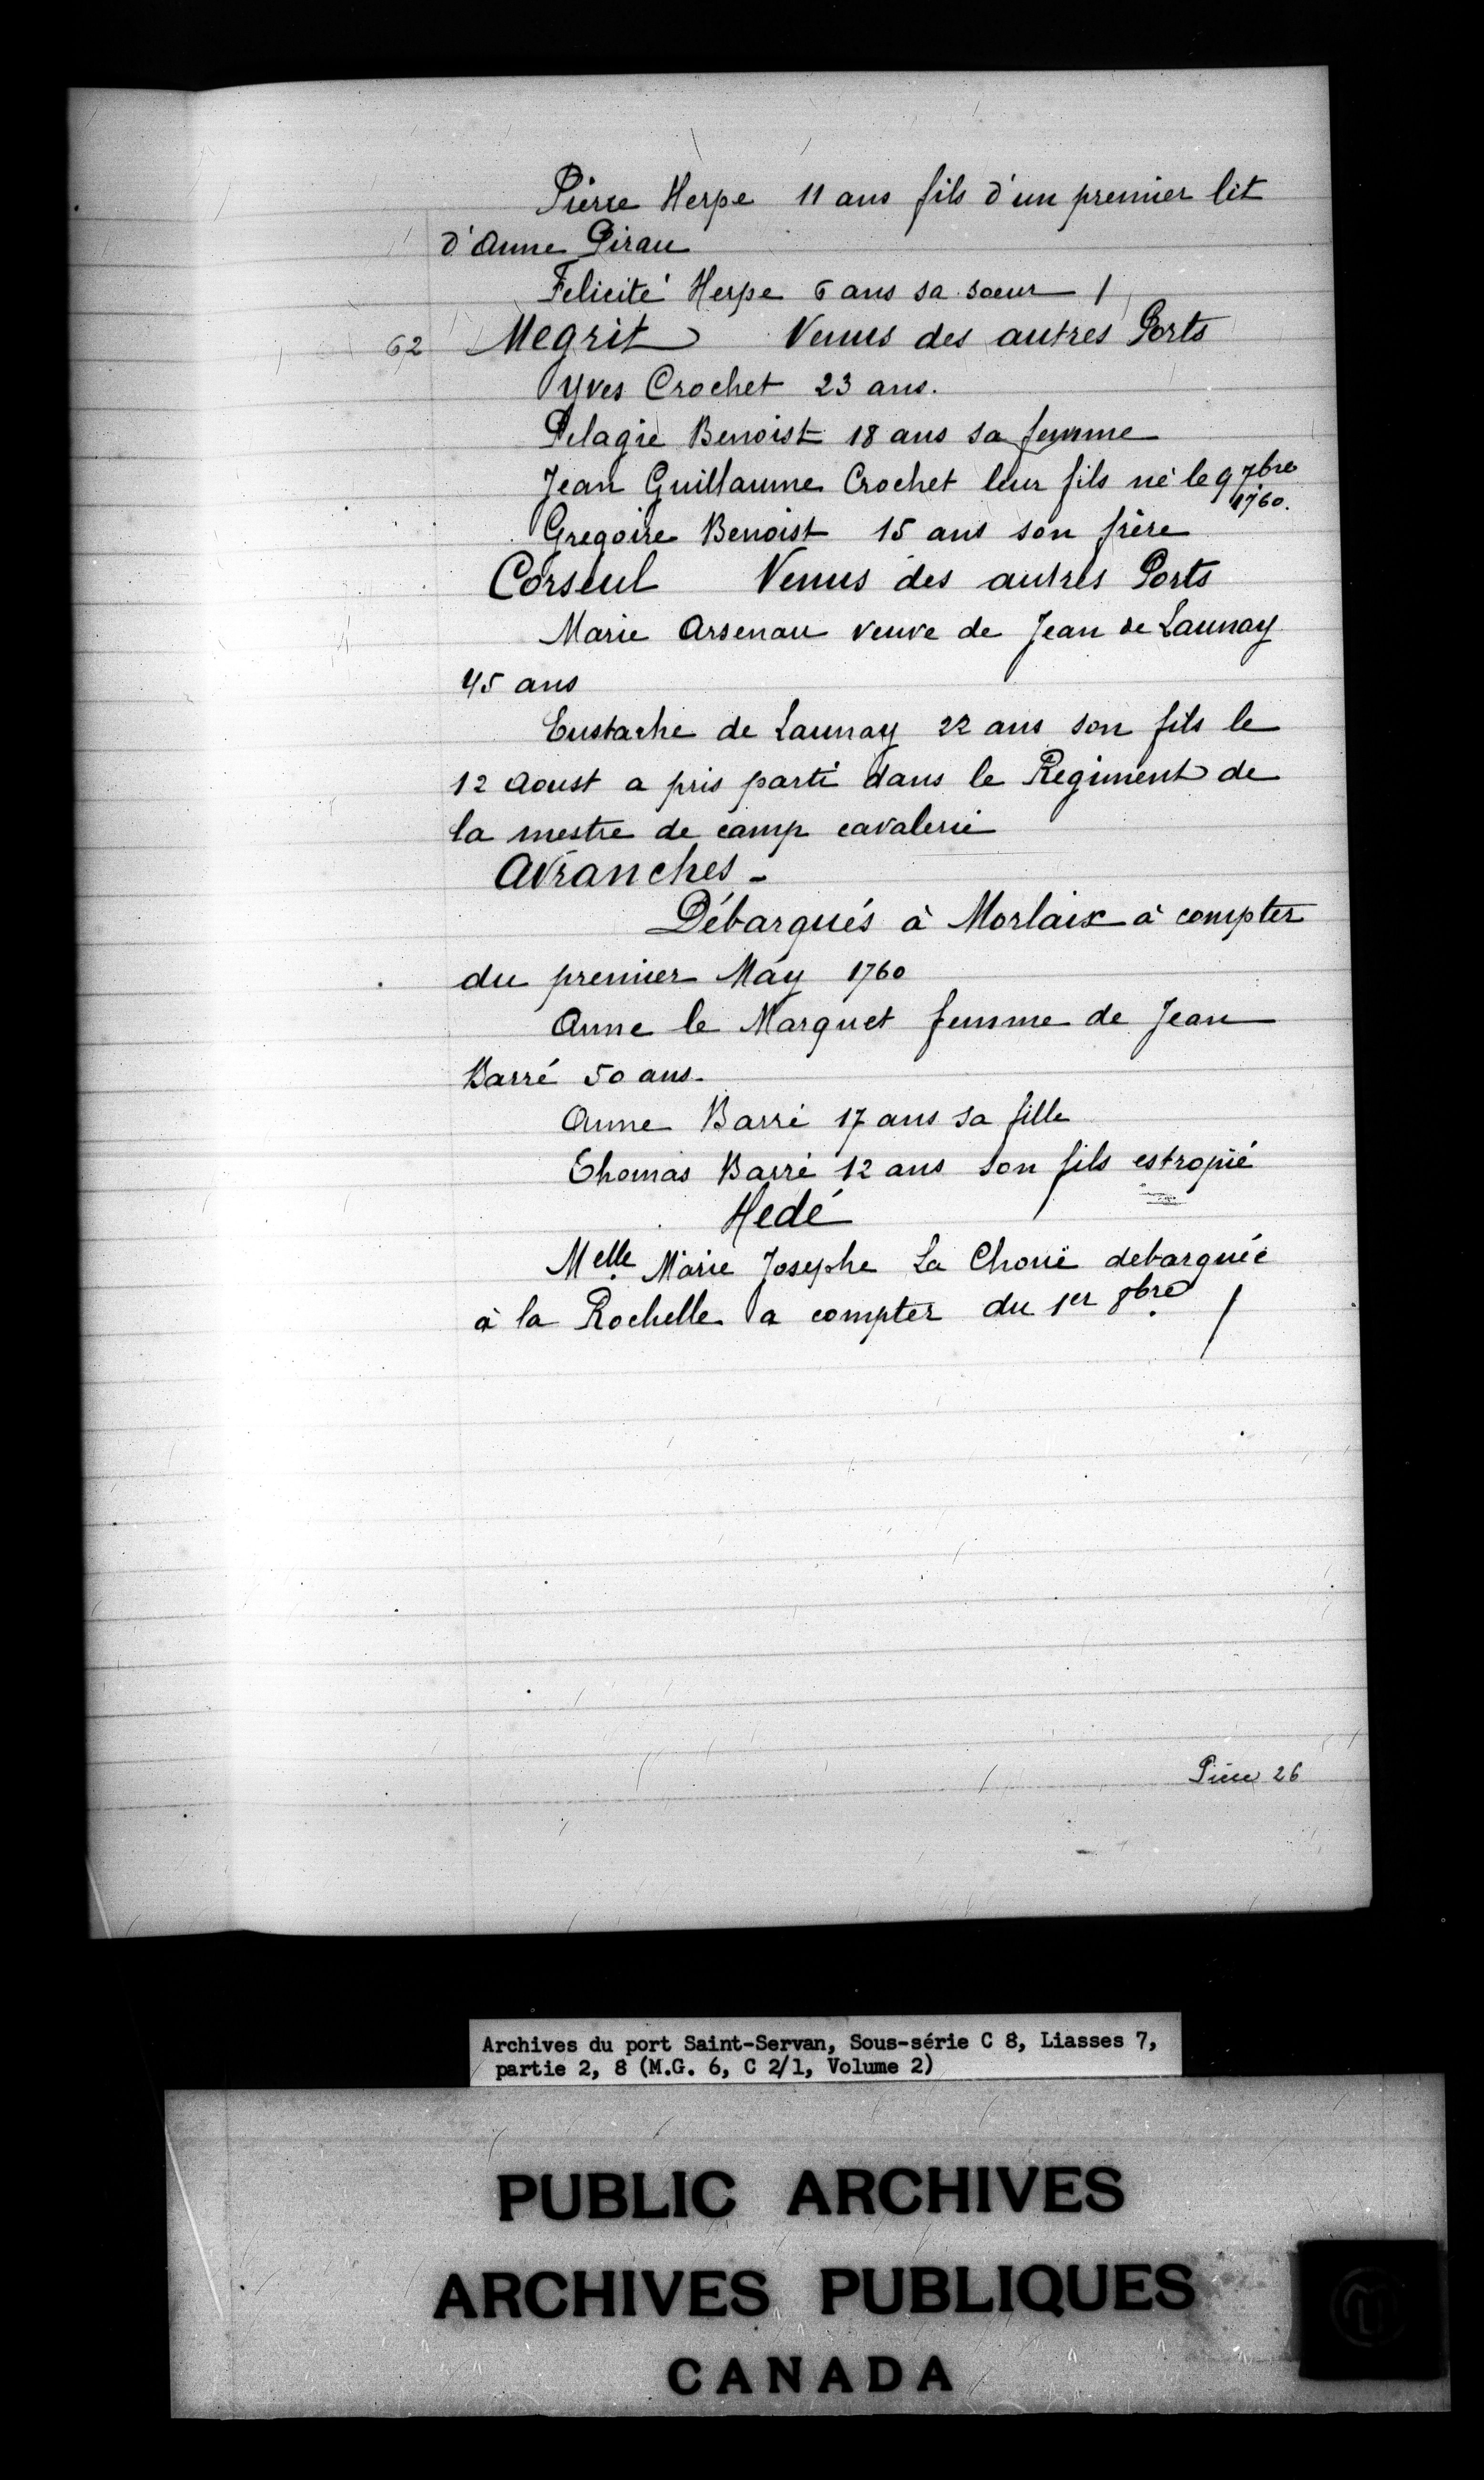 Pierre Herpe 11 ans fils d'un premier lit
d'Anne Pirau
Felicité Herpe 6 ans sa soeur /
62 Megrit Venus des autres Ports
Yves Crochet 23 ans.
Pelagie Benoist 18 ans sa femme
Jean Guillaume Crochet leur fils né le 9 7bre
1760.
Gregoire Benoist 15 ans son frère
Corseul Venus des autres Ports
Marie Arsenau veuve de Jean de Launay
45 ans
Eustache de Launay 22 ans son fils le
12 Aoust a pris parti dans le Regiment de
la mestre de camp cavalerie
Avranches -
Débarqués à Morlaix à compter
du premier May 1760
Anne le Marquet femme de Jean
Barré 50 ans.
Anne Barré 17 ans sa fille
Thomas Barré 12 ans son fils estropié
Hedé
Melle Marie Josephe La Choue debarquée
à la Rochelle a compter du 1er 8bre /
Pièce 26
Archives du port Saint-Servan, Sous-série C 8, Liasses 7,
partie 2, 8 (M.G. 6, C 2/1, Volume 2)
PUBLIC ARCHIVES
ARCHIVES PUBLIQUES
CANADA